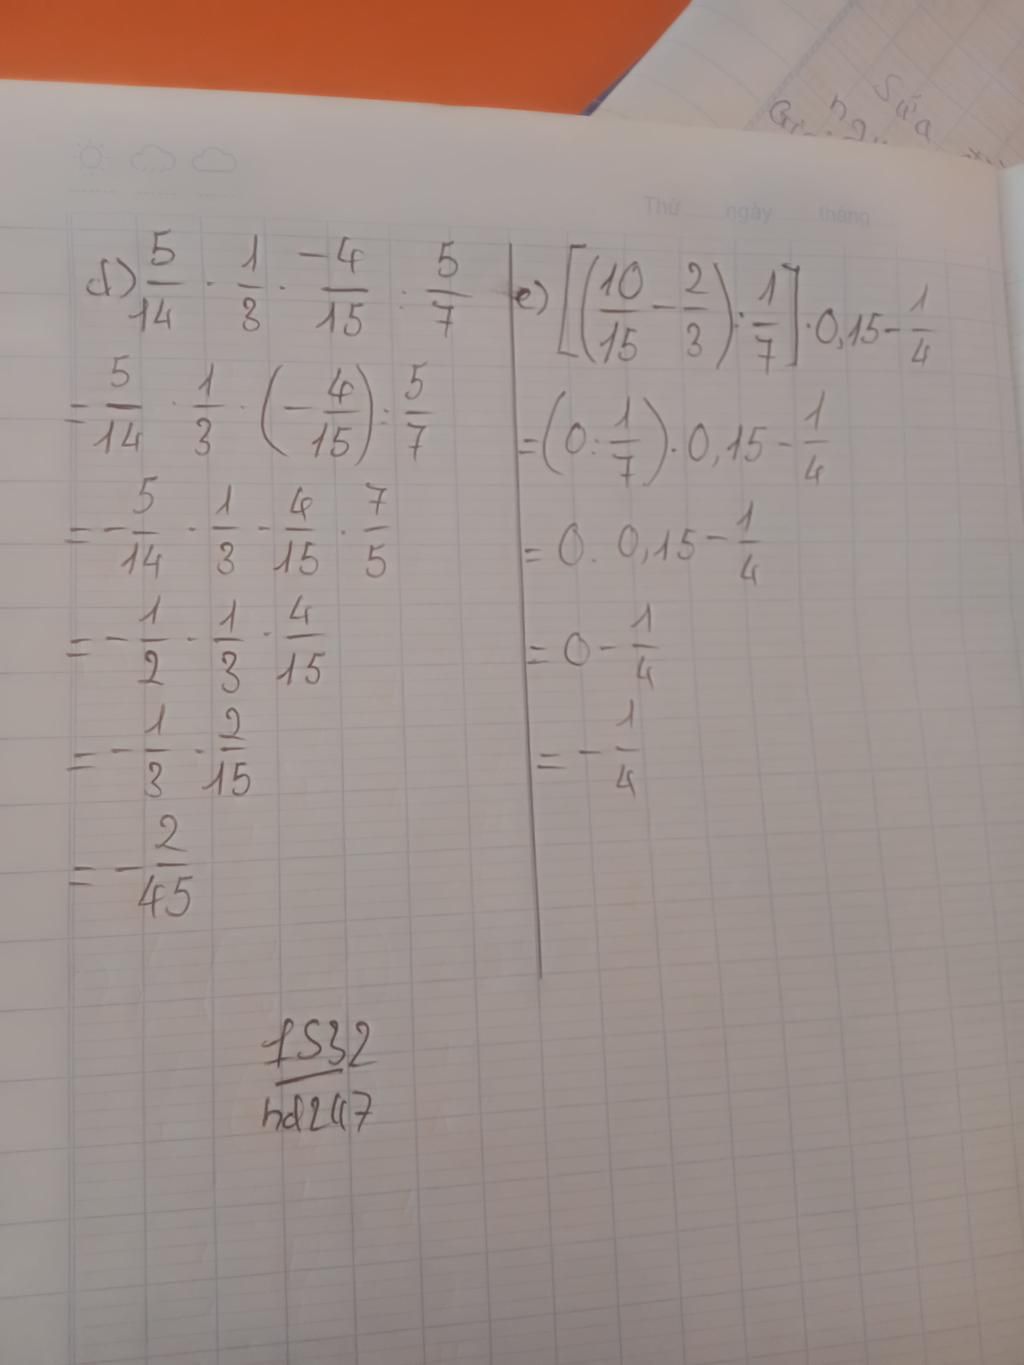 Sửa
Thứ ngày tháng
d) 5/14 · 1/3 · -4/15 : 5/7
= 5/14 · 1/3 · (-4/15) : 5/7
= -5/14 · 1/3 · 4/15 · 7/5
= -1/2 · 1/3 · 4/15
= -1/3 · 2/15
= -2/45
e) [(10/15 - 2/3) : 1/7] · 0,15 - 1/4
= (0 : 1/7) · 0,15 - 1/4
= 0. 0,15 - 1/4
= 0 - 1/4
= -1/4
1532
hd247